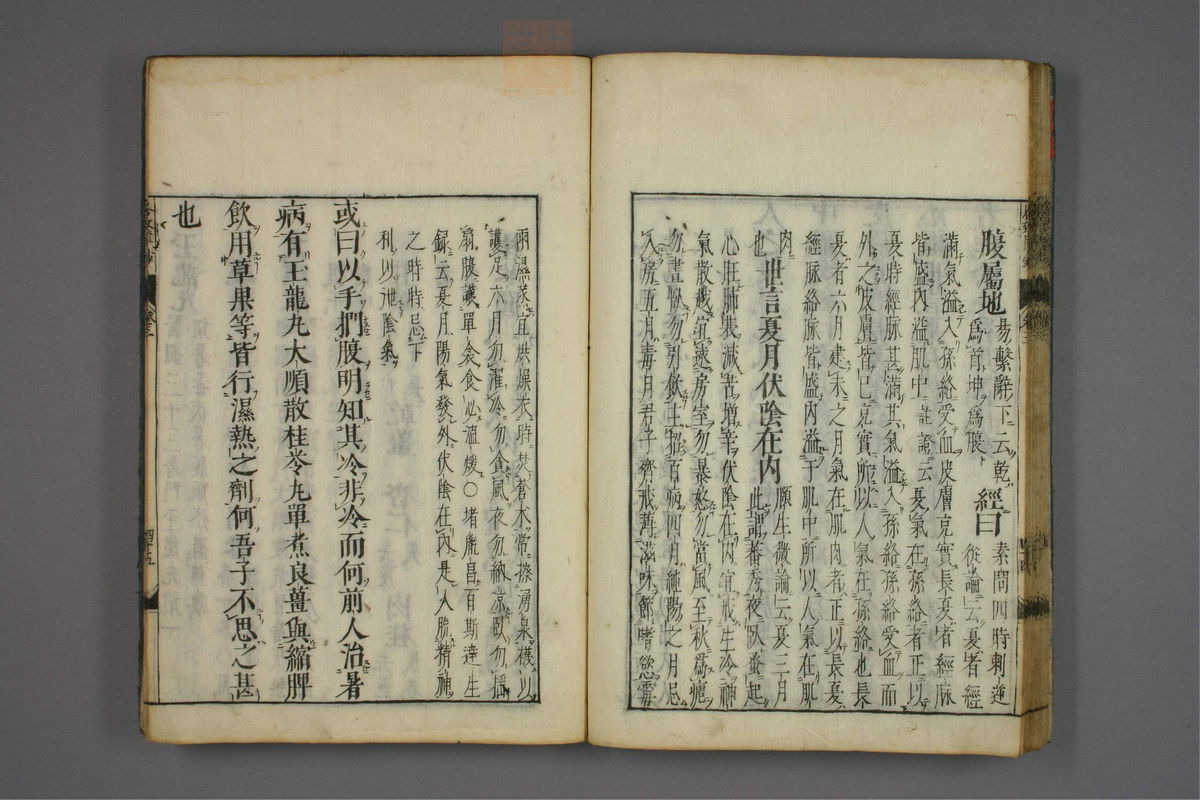 腹屬地
易繫辭下云乾
爲首坤爲腹
經曰
素問四時刺逆
從論云夏者經
滿氣溢入孫絡受血皮膚充實長夏者經脉
皆盛內溢肌中註證云夏氣在孫絡者正以
夏時經脉甚滿其氣溢入孫絡孫絡受血而
外之皮膚皆已充實所以人氣在孫絡也長
夏者六月建未之月氣在肌肉者正以長夏
經脉絡脉皆盛內溢于肌中所以人氣在肌
肉
也
世言夏月伏陰在內
順生微論云夏三月
此謂蕃秀夜臥蚤起
心旺肺衰減苦增辛伏陰在內宜戒生冷神
氣散越宜遠房室勿暴怒勿當風至秋爲瘧
勿晝臥勿引飲主招百病四月純陽之月忌
入房五月毒月君子齊戒薄滋味節嗜慾霉
雨濕蒸宜烘燥衣時焚蒼朮常擦湧泉襪以
護足六月勿濯冷勿食風夜勿納凉臥勿搖
扇腹護單衾食必温煖○堵胤昌百斯達生
錄云夏月陽氣發外伏陰在內是人脫精神
之時時忌下
利以泄陰氣
或曰以手捫腹明知其冷非冷而何前人治暑
病有王龍丸大順散桂苓丸單煮良薑與縮脾
飲用草果等皆行濕熱之劑何吾子不思之甚
也